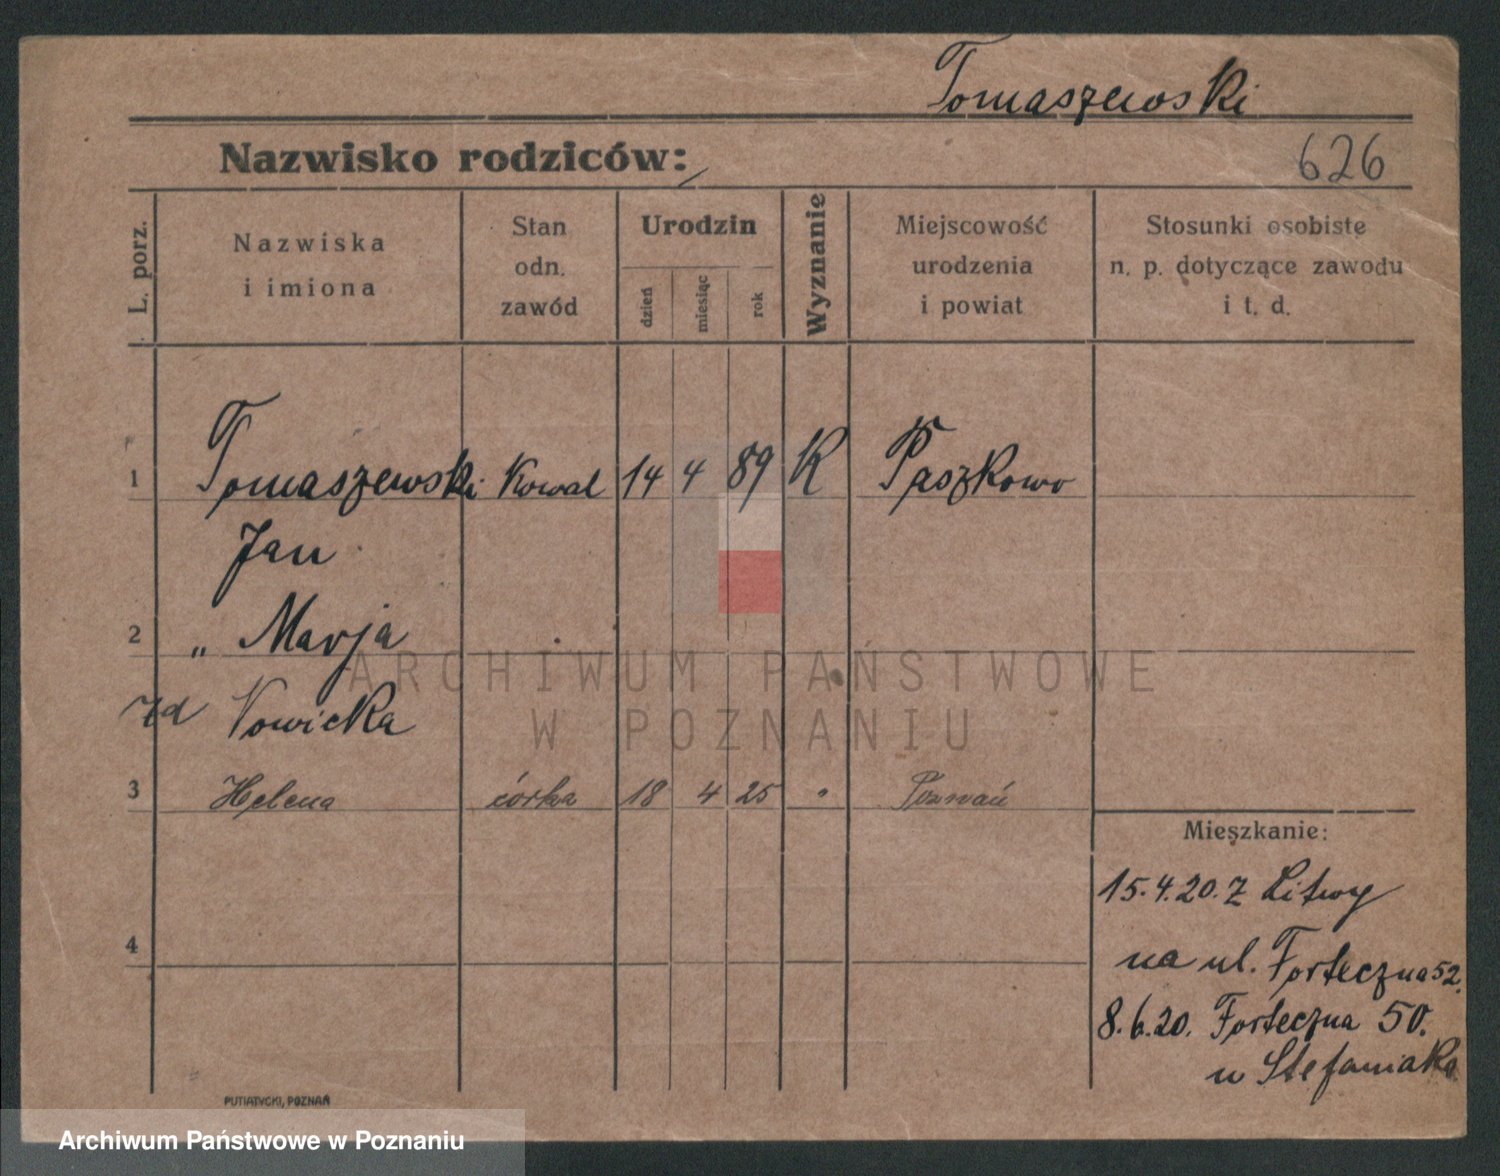 Tomaszewski
Nazwisko rodziców:
626
L. porz.
Nazwiska
i imiona
Stan
odn.
zawód
Urodzin
dzień
miesiąc
rok
Wyznanie
Miejscowość
urodzenia
i powiat
Stosunki osobiste
n. p. dotyczące zawodu
i t. d.
1 Tomaszewski Kowal 14 4 89 K Paszkowo
Jan
2 „ Marja
zd Nowicka
3 Helena córka 18 4 25 " Poznań
4
Mieszkanie:
15.4.20. Z Litwy
na ul. Forteczna 52.
8.6.20. Forteczna 50.
u Stefaniaka
PUTIATYCKI, POZNAŃ
ARCHIWUM PAŃSTWOWE
W POZNANIU
Archiwum Państwowe w Poznaniu